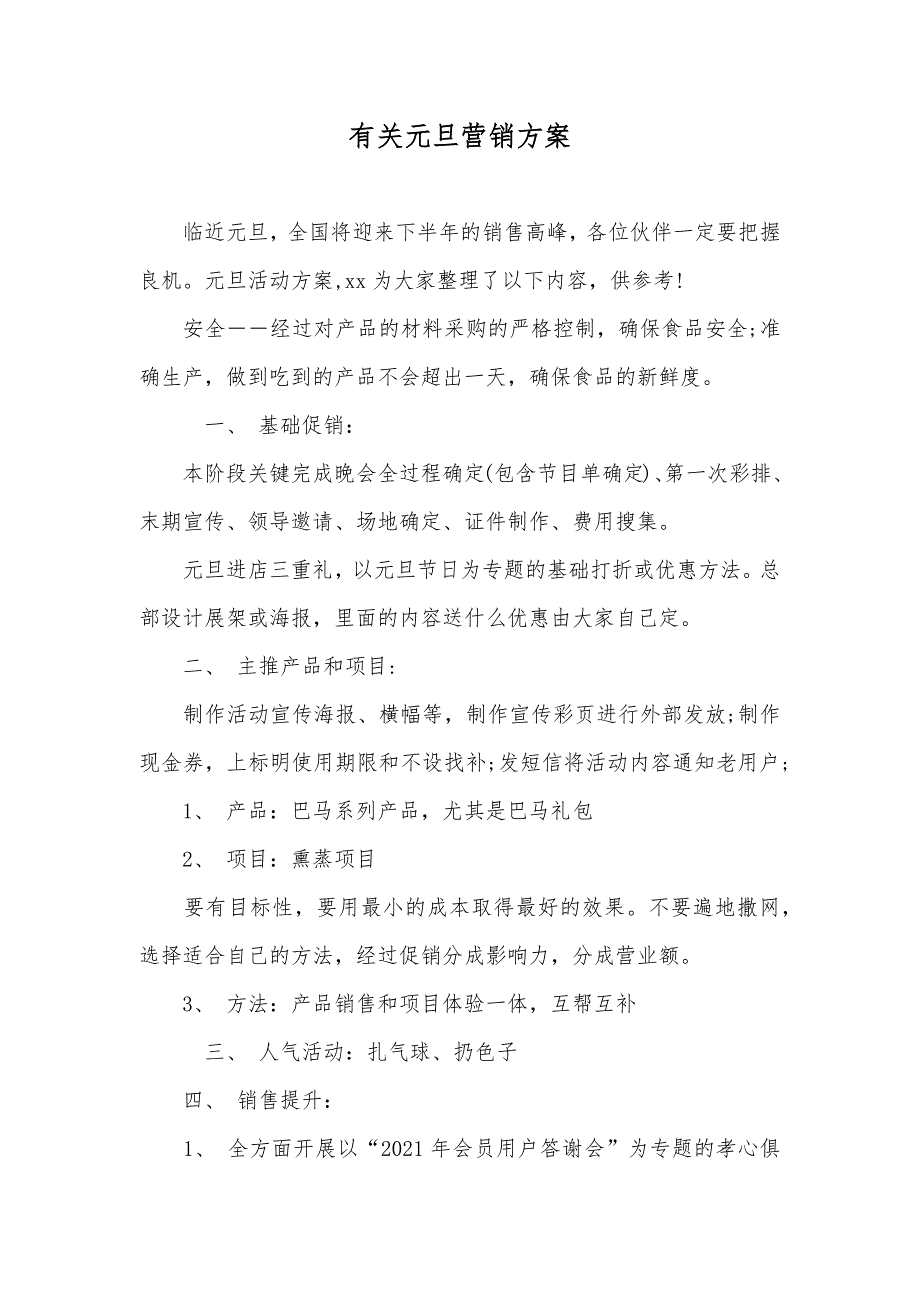 有关元旦营销方案
临近元旦，全国将迎来下半年的销售高峰，各位伙伴一定要把握
良机。元旦活动方案,xx 为大家整理了以下内容，供参考!
安全－－经过对产品的材料采购的严格控制，确保食品安全;准
确生产，做到吃到的产品不会超出一天，确保食品的新鲜度。
一、 基础促销：
本阶段关键完成晚会全过程确定(包含节目单确定)、第一次彩排、
末期宣传、领导邀请、场地确定、证件制作、费用搜集。
元旦进店三重礼，以元旦节日为专题的基础打折或优惠方法。总
部设计展架或海报，里面的内容送什么优惠由大家自己定。
二、 主推产品和项目：
制作活动宣传海报、横幅等，制作宣传彩页进行外部发放;制作
现金券，上标明使用期限和不设找补;发短信将活动内容通知老用户;
1、 产品：巴马系列产品，尤其是巴马礼包
2、 项目：熏蒸项目
要有目标性，要用最小的成本取得最好的效果。不要遍地撒网，
选择适合自己的方法，经过促销分成影响力，分成营业额。
3、 方法：产品销售和项目体验一体，互帮互补
三、 人气活动：扎气球、扔色子
四、 销售提升：
1、 全方面开展以“2021 年会员用户答谢会”为专题的孝心俱